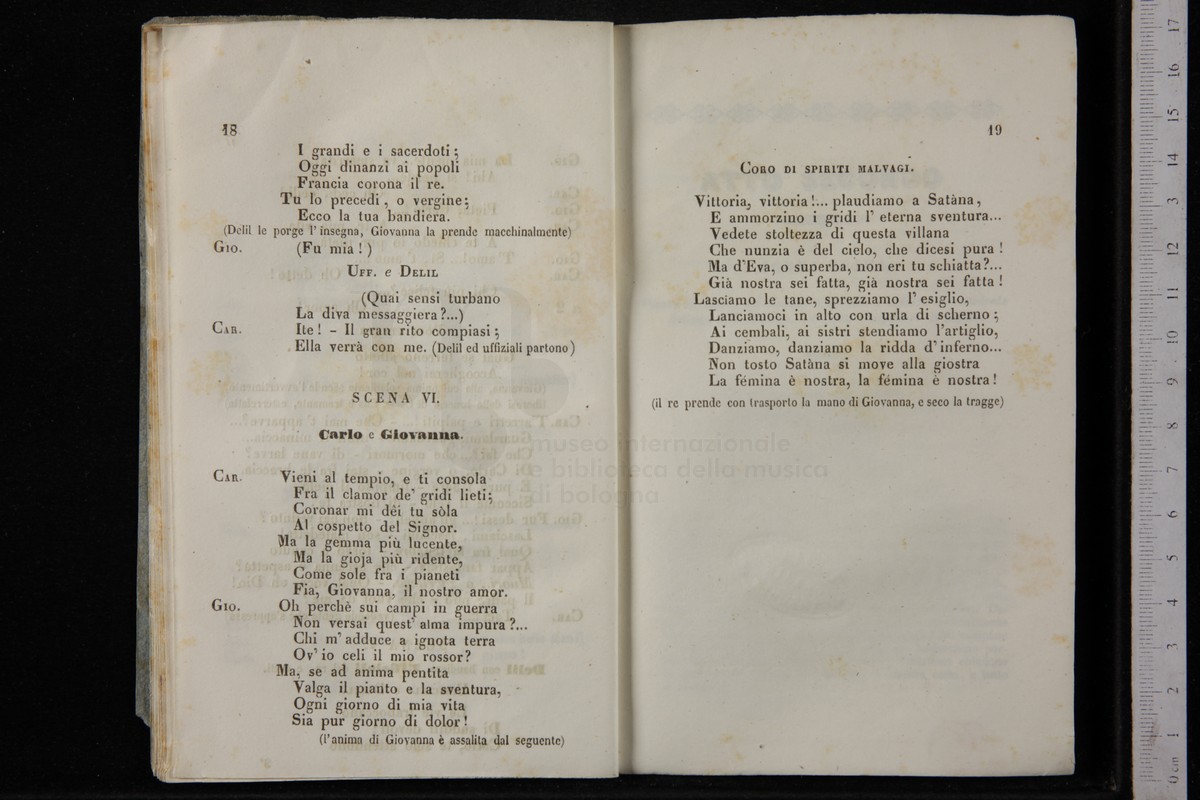 18
I grandi e i sacerdoti;
Oggi dinanzi ai popoli
Francia corona il re.
Tu lo precedi, o vergine;
Ecco la tua bandiera.
(Delil le porge l'insegna, Giovanna la prende macchinalmente)
Gio. (Fu mia!)
Uff. e Delil
(Quai sensi turbano
La diva messaggiera?...)
Car. Ite! - Il gran rito compiasi;
Ella verrà con me. (Delil ed uffiziali partono)
SCENA VI.
Carlo e Giovanna.
Car. Vieni al tempio, e ti consola
Fra il clamor de' gridi lieti;
Coronar mi dêi tu sòla
Al cospetto del Signor.
Ma la gemma più lucente,
Ma la gioja più ridente,
Come sole fra i pianeti
Fia, Giovanna, il nostro amor.
Gio. Oh perchè sui campi in guerra
Non versai quest' alma impura?...
Chi m' adduce a ignota terra
Ov' io celi il mio rossor?
Ma, se ad anima pentita
Valga il pianto e la sventura,
Ogni giorno di mia vita
Sia pur giorno di dolor!
(l'anima di Giovanna è assalita dal seguente)
19
Coro di spiriti malvagi.
Vittoria, vittoria!... plaudiamo a Satàna,
E ammorzino i gridi l' eterna sventura...
Vedete stoltezza di questa villana
Che nunzia è del cielo, che dicesi pura!
Ma d'Eva, o superba, non eri tu schiatta?...
Già nostra sei fatta, già nostra sei fatta!
Lasciamo le tane, sprezziamo l' esiglio,
Lanciamoci in alto con urla di scherno;
Ai cembali, ai sistri stendiamo l'artiglio,
Danziamo, danziamo la ridda d' inferno...
Non tosto Satàna si move alla giostra
La fémina è nostra, la fémina è nostra!
(il re prende con trasporto la mano di Giovanna, e seco la tragge)
museo internazionale
e biblioteca della musica
di bologna
0 cm 1 2 3 4 5 6 7 8 9 10 11 12 13 14 15 16 17